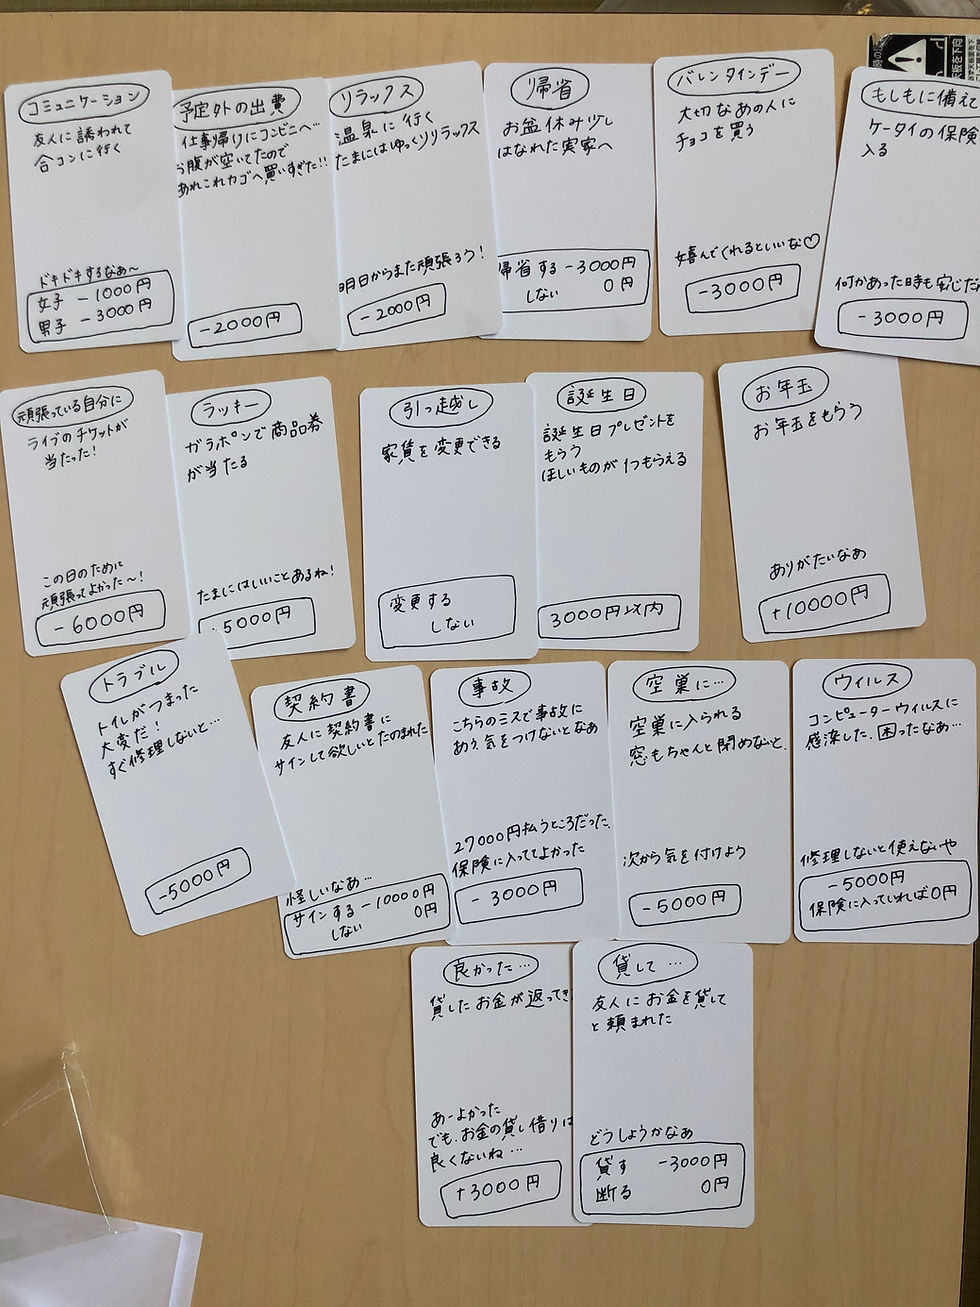 コミュニケーション
友人に誘われて
合コンに行く
ドキドキするなぁ〜
女子 -1000円
男子 -3000円
予定外の出費
仕事帰りにコンビニへ…
お腹が空いてたので
あれこれカゴへ買いすぎた!!
-2000円
リラックス
温泉に行く
たまにはゆっくりリラックス
明日からまた頑張ろう!
-2000円
帰省
お盆休み少し
はなれた実家へ
帰省する -3000円
しない 0円
バレンタインデー
大切なあの人に
チョコを買う
嬉んでくれるといいな♡
-3000円
もしもに備えて
ケータイの保険
入る
何かあった時も安心だ
-3000円
頑張っている自分に
ライブのチケットが
当たった!
この日のために
頑張ってよかった〜!
-6000円
ラッキー
ガラポンで商品券
が当たる
たまにはいいことあるね!
+5000円
引っ越し
家賃を変更できる
変更する
しない
誕生日
誕生日プレゼントを
もらう
ほしいものが1つもらえる
3000円以内
お年玉
お年玉をもらう
ありがたいなあ
+10000円
トラブル
トイレがつまった
大変だ!
すぐ修理しないと…
-5000円
契約書
友人に契約書に
サインして欲しいとたのまれた
怪しいなあ…
サインする -10000円
しない 0円
事故
こちらのミスで事故に
あう.気をつけないとなあ
27000円払うところだった.
保険に入っててよかった
-3000円
空巣に…
空巣に入られる
窓もちゃんと閉めないと.
次から気を付けよう
-5000円
ウィルス
コンピューターウィルスに
感染した.困ったなあ…
修理しないと使えないや
-5000円
保険に入っていれば0円
良かった…
貸したお金が返ってき
あーよかった
でも、お金の貸し借りは
良くないね…
+3000円
貸して…
友人にお金を貸して
と頼まれた
どうしようかなあ
貸す -3000円
断る 0円